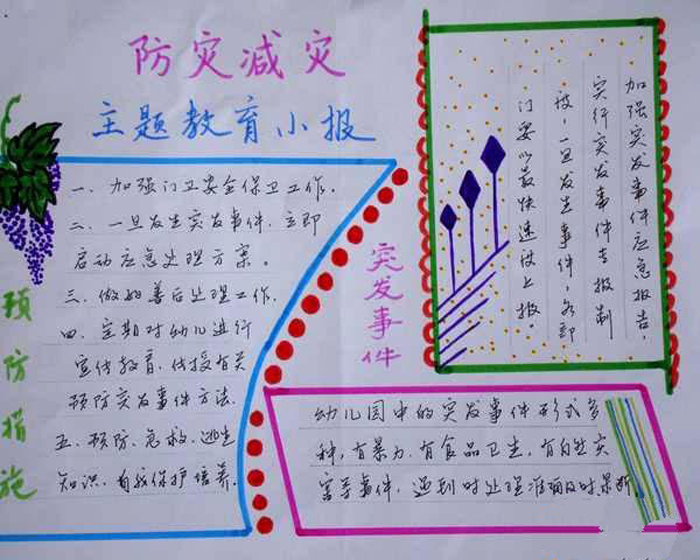 防灾减灾
主题教育小报
预防措施
一、加强门卫安全保卫工作。
二、一旦发生突发事件，立即
启动应急处理方案。
三、做好善后处理工作。
四、定期对幼儿进行
宣传教育，传授有关
预防突发事件方法。
五、预防、急救、逃生
知识、自我保护培养。
突发事件
加强突发事件应急报告，
实行突发事件专报制
度，一旦发生事件，各部
门要以最快速度上报。
幼儿园中的突发事件形式多
种，有暴力、有食品卫生，有自然灾
害等事件，遇到时处理准确及时果断。